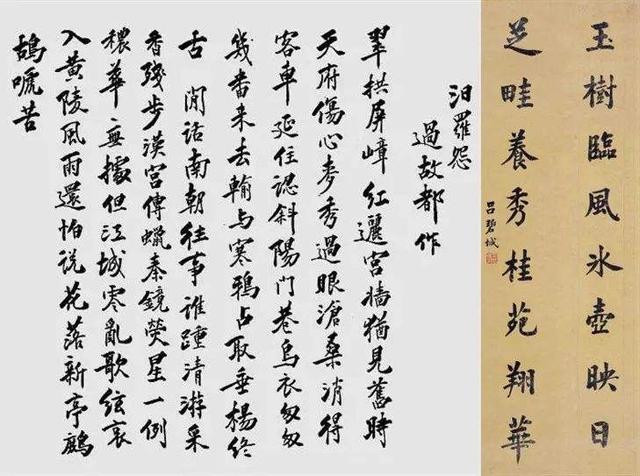 玉樹臨風冰壺映日
芝畦養秀桂苑翔華
呂碧城
汨羅怨
過故都作
翠拱屏嶂紅邐宮牆猶見舊時
天府傷心麥秀過眼滄桑消得
客車延佇認斜陽門巷烏衣匆匆
幾番来去輸与寒鴉占取垂楊終
古 閒話南朝往事誰踵清游采
香殘步漢宮傳蠟秦鏡熒星一例
穠華無據但江城零亂歌絃哀
入黃陵風雨還怕说花落新亭鷓
鴣嗁苦